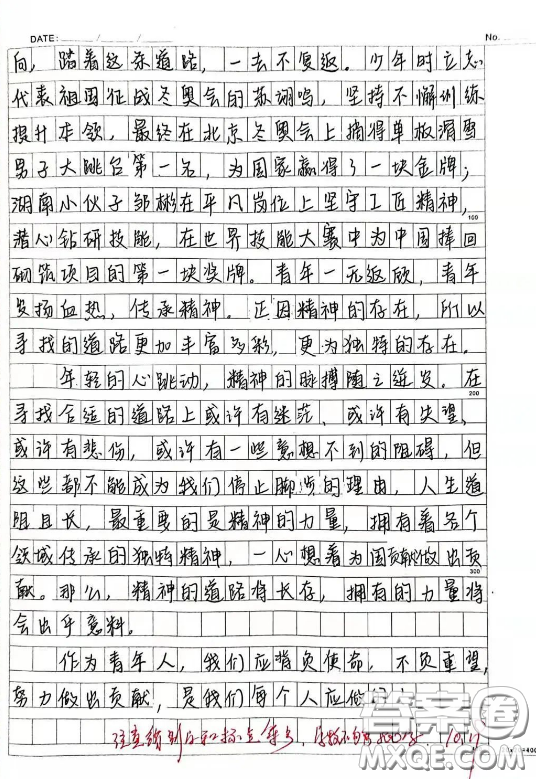 DATE: / / No.
向，踏着这条道路，一去不复返。少年时立志
代表祖国征战冬奥会的苏翊鸣，坚持不懈训练
提升本领，最终在北京冬奥会上摘得单板滑雪
男子大跳台第一名，为国家赢得了一块金牌；
湖南小伙子邹彬在平凡岗位上坚守工匠精神，
100
潜心钻研技能，在世界技能大赛中为中国捧回
砌筑项目的第一块奖牌。青年一无返顾，青年
发扬血热，传承精神。正因精神的存在，所以
寻找的道路更加丰富多彩，更为独特的存在。
年轻的心跳动，精神的脉搏随之迸发。在
200
寻找合适的道路上或许有迷茫，或许有失望，
或许有悲伤，或许有一些意想不到的阻碍，但
这些都不能成为我们停止脚步的理由，人生道
阻且长，最重要的是精神的力量，拥有着各个
领域传承的独特精神，一心想着为国贡献做出贡
300
献。那么，精神的道路将长存，拥有的力量将
会出乎意料。
作为青年人，我们应背负使命，不负重望，
努力做出贡献，是我们每个人应做
400
答案圈